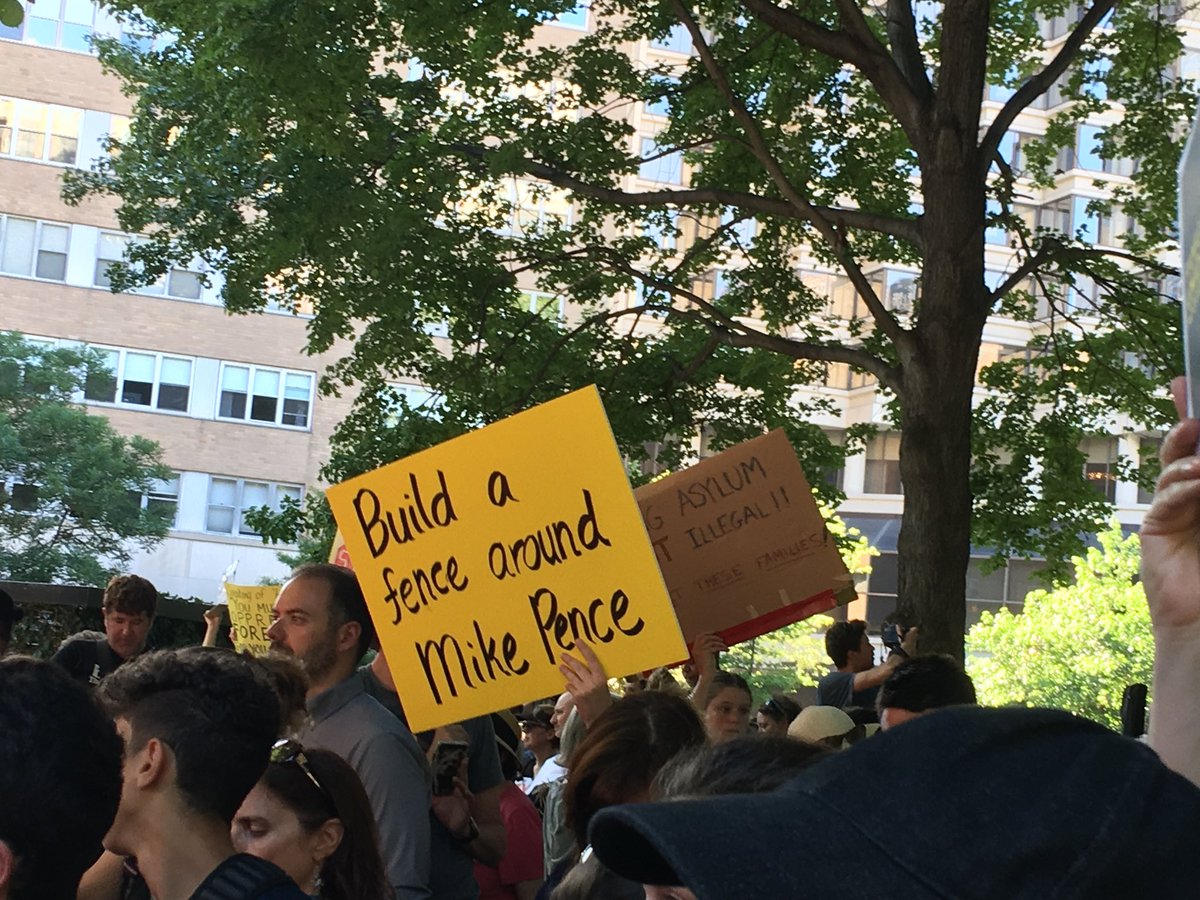 Build a
fence around
Mike Pence
ASYLUM
ILLEGAL!!
THESE FAMILIES!
of
YOU
FORE